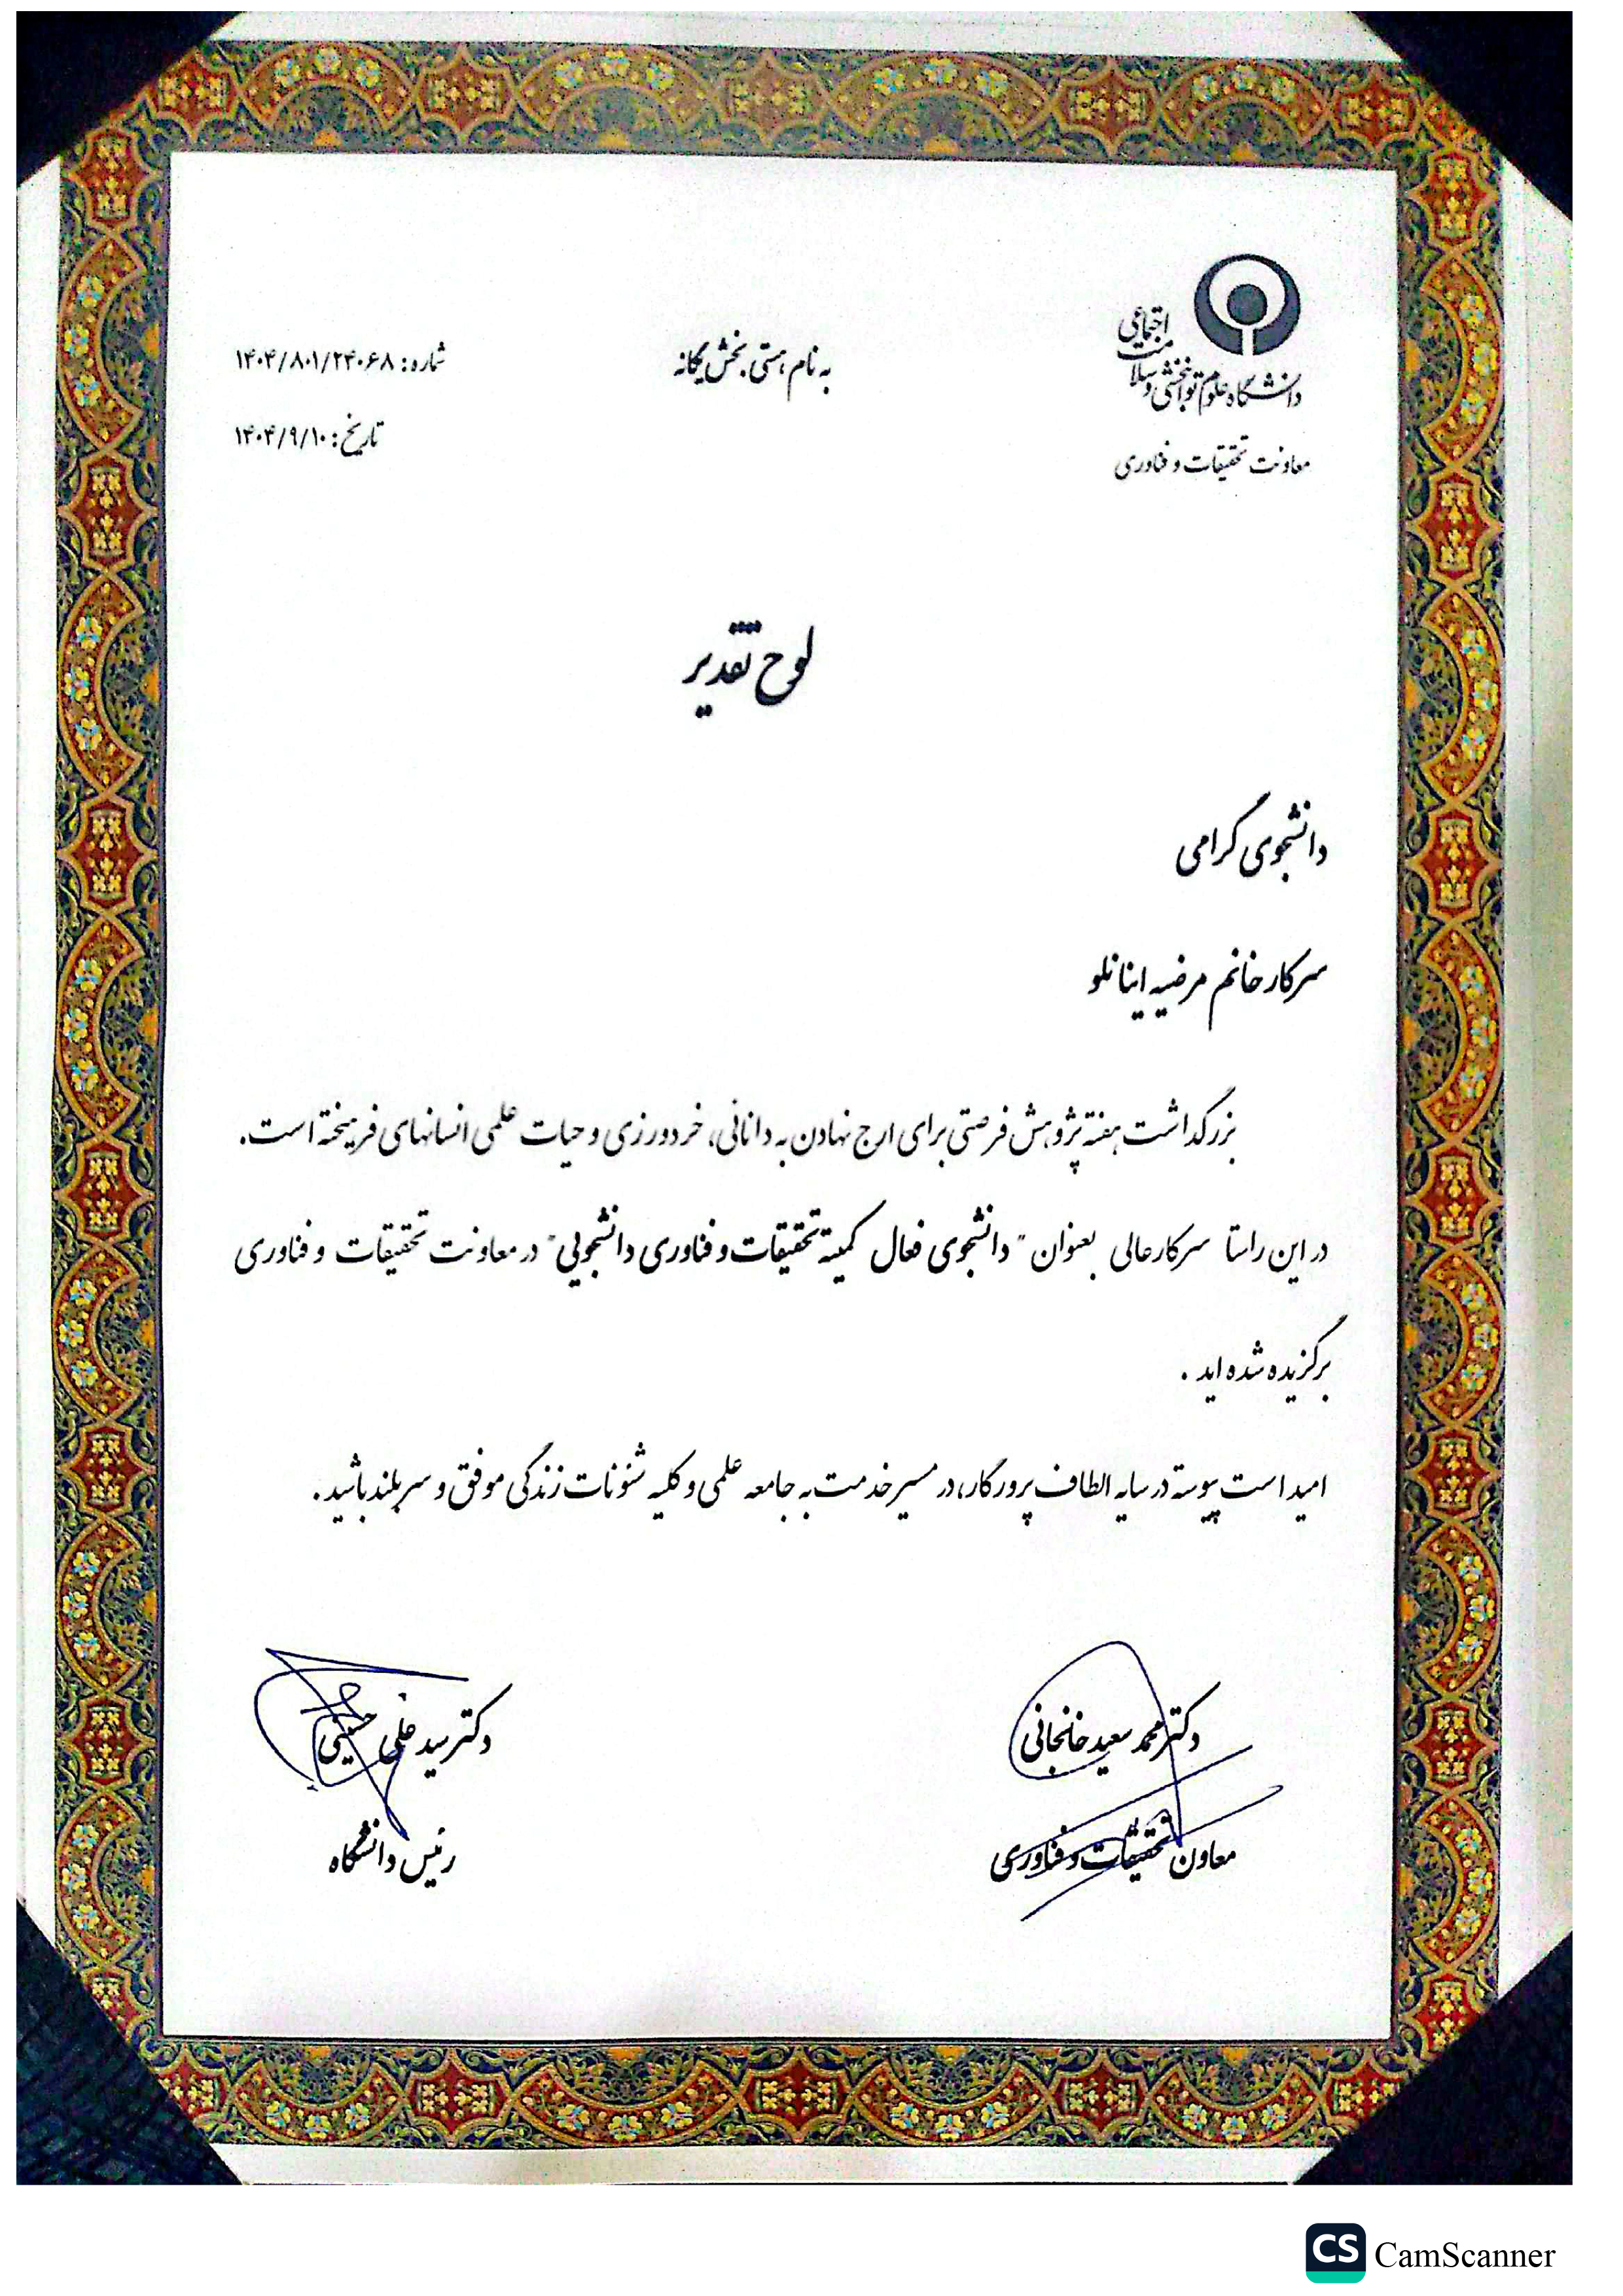 دانشگاه علوم توانبخشی و سلامت اجتماعی
معاونت تحقیقات و فناوری
به نام هستی بخش یگانه
شماره: ۱۴۰۴/۸۰۱/۲۴۰۶۸
تاریخ: ۱۴۰۴/۹/۱۰
لوح تقدیر
دانشجوی گرامی
سرکار خانم مرضیه اینانلو
بزرگداشت هفته پژوهش فرصتی برای ارج نهادن به دانائی، خردورزی و حیات علمی انسانهای فرهیخته است.
در این راستا سرکارعالی بعنوان "دانشجوی فعال کمیته تحقیقات و فناوری دانشجویی" در معاونت تحقیقات و فناوری
برگزیده شده اید.
امید است پیوسته در سایه الطاف پرورگار، در مسیر خدمت به جامعه علمی و کلیه شئونات زندگی موفق و سربلند باشید.
دکتر محمد سعید خانجانی
معاون تحقیقات و فناوری
دکتر سید علی حسینی
رئیس دانشگاه
CS CamScanner